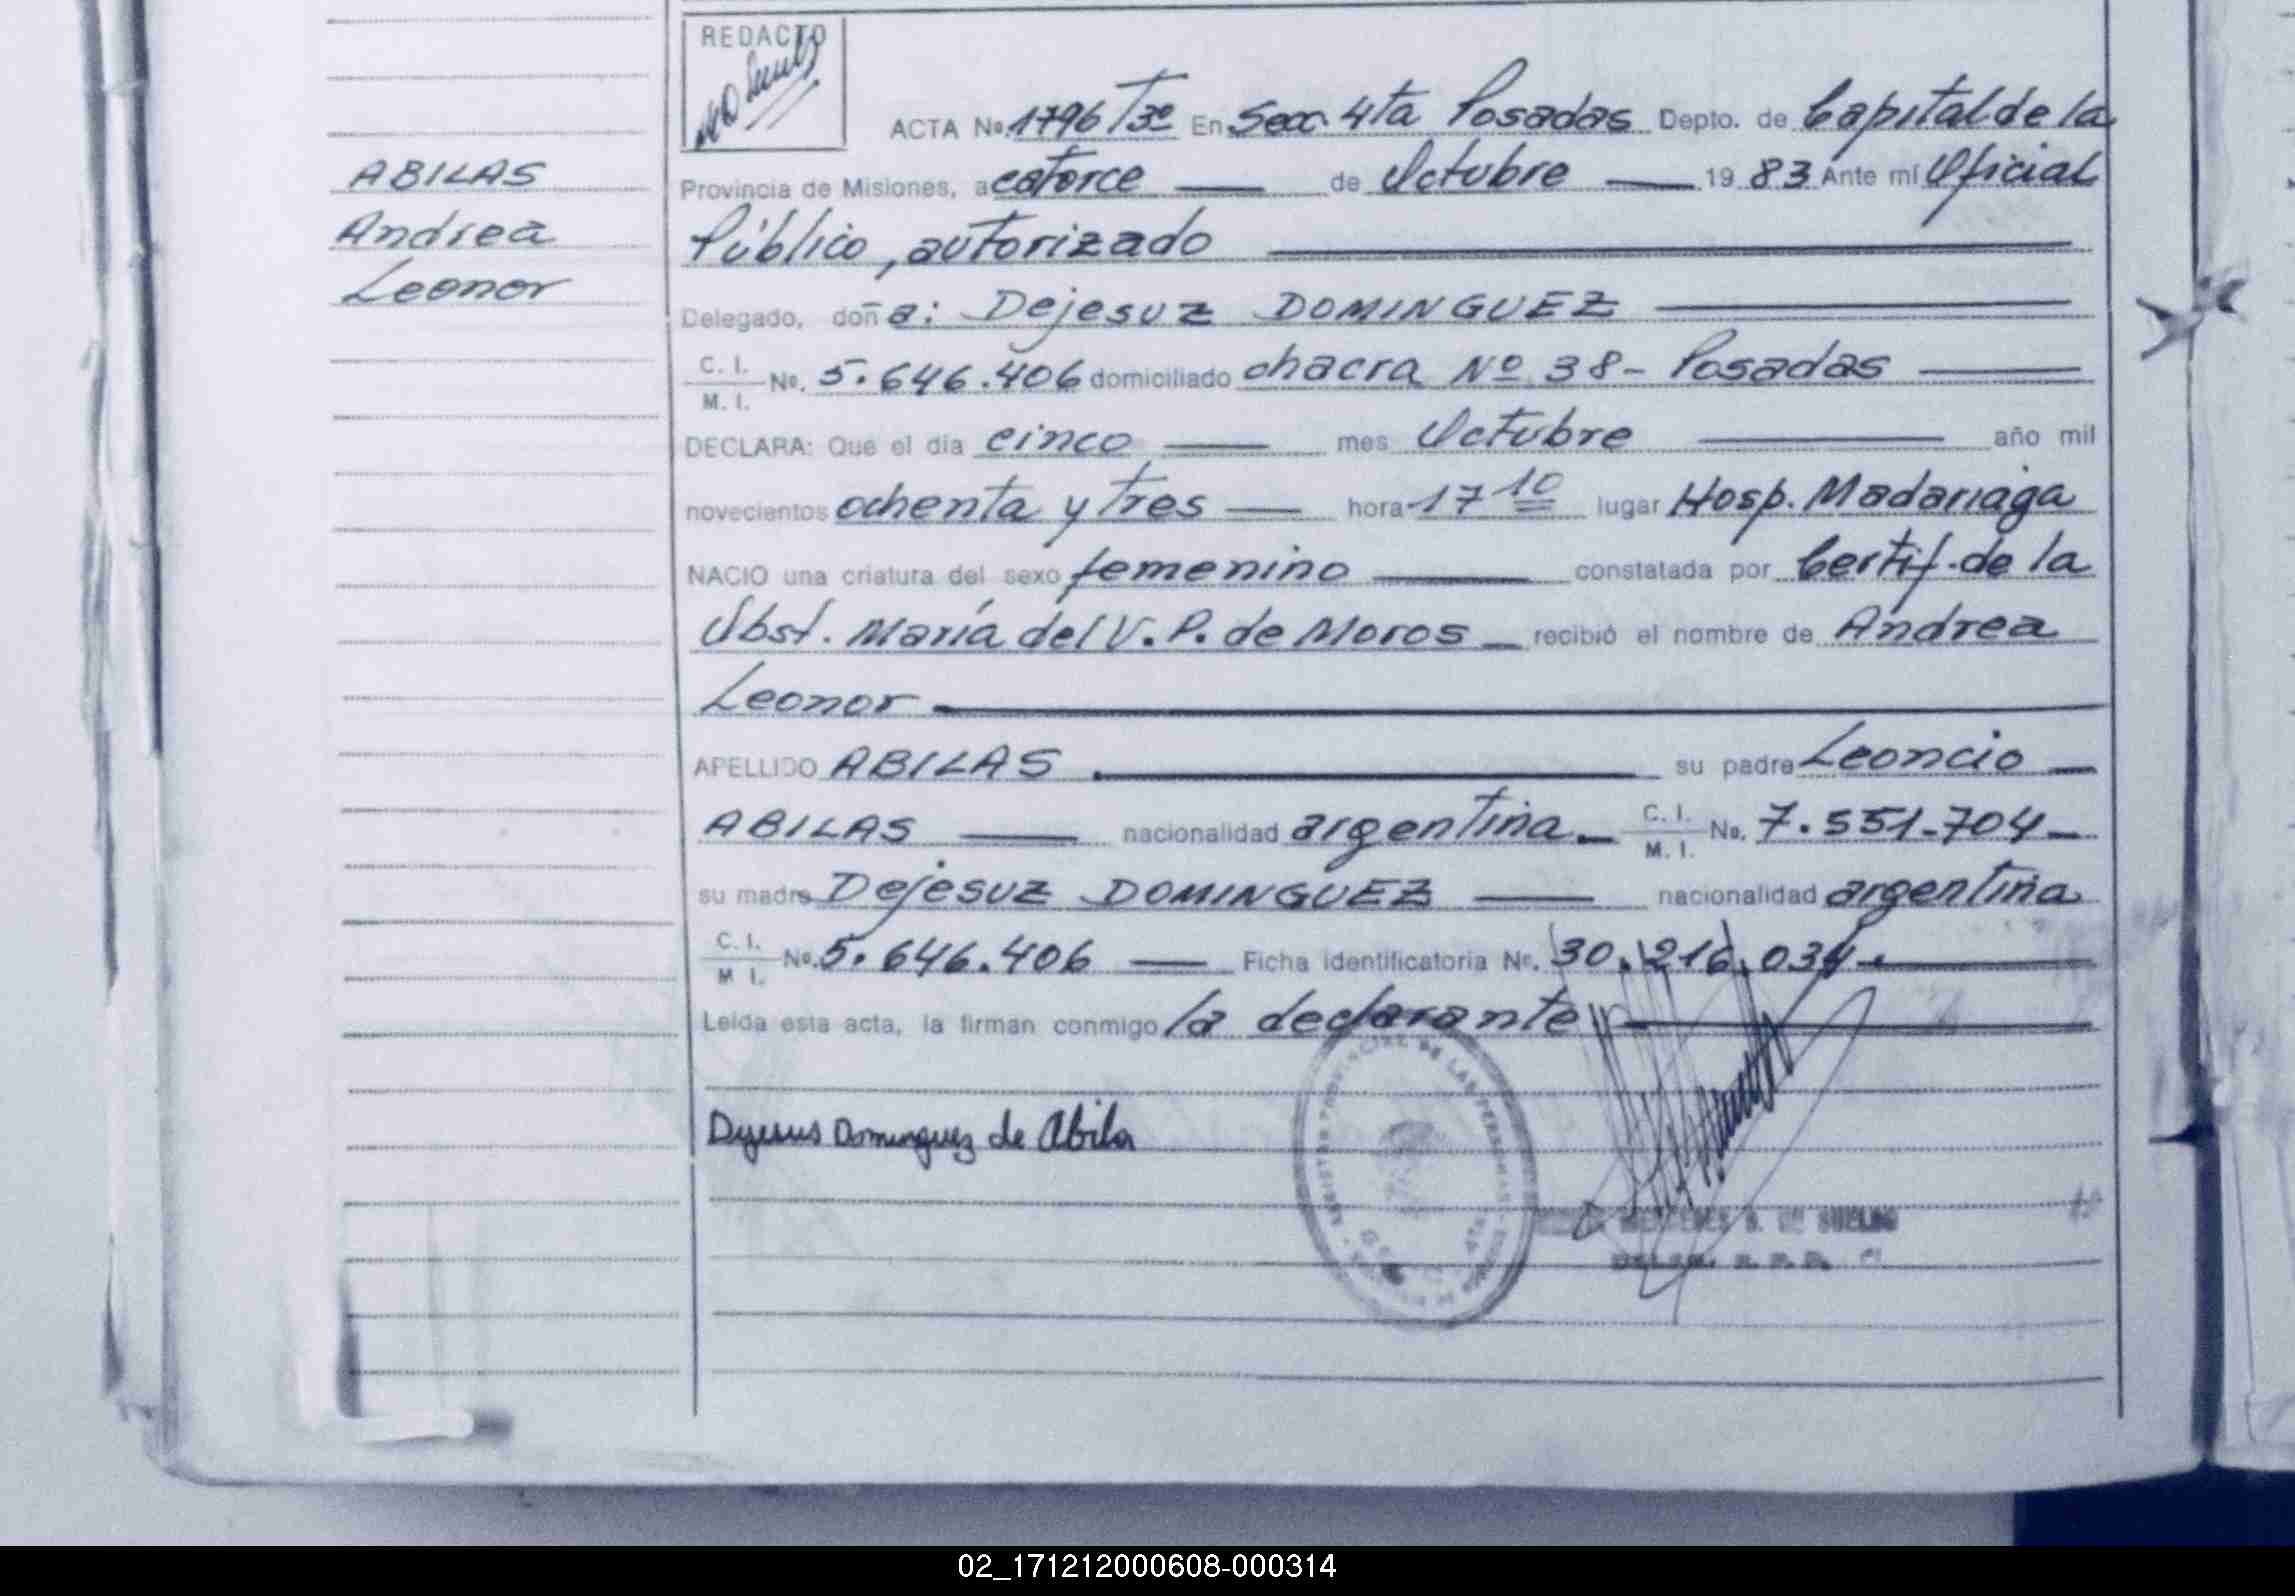 REDACTO
ACTA No. 1796 T3º En Secc. 4ta Posadas Depto. de Capital de la
ABILAS
Provincia de Misiones, a catorce de Octubre 19 83 Ante mí Oficial
Andrea
Público, autorizado
Leonor
Delegado, doña: Dejesuz DOMINGUEZ
C. I.
M. I. No. 5.646.406 domiciliado chacra Nº 38 - Posadas
DECLARA: Que el día cinco mes Octubre año mil
novecientos ochenta y tres hora 17 10 lugar Hosp. Madariaga
NACIO una criatura del sexo femenino constatada por Certif. de la
Obst. María del V. P. de Moros recibió el nombre de Andrea
Leonor
APELLIDO ABILAS su padre Leoncio
ABILAS nacionalidad argentina C. I. M. I. No. 7.551.704
su madre Dejesuz DOMINGUEZ nacionalidad argentina
C. I.
M I. No. 5.646.406 Ficha identificatoria No. 30.216.034.
Leída esta acta, la firman conmigo la declarante
Dejesus Dominguez de Abila
02_171212000608-000314